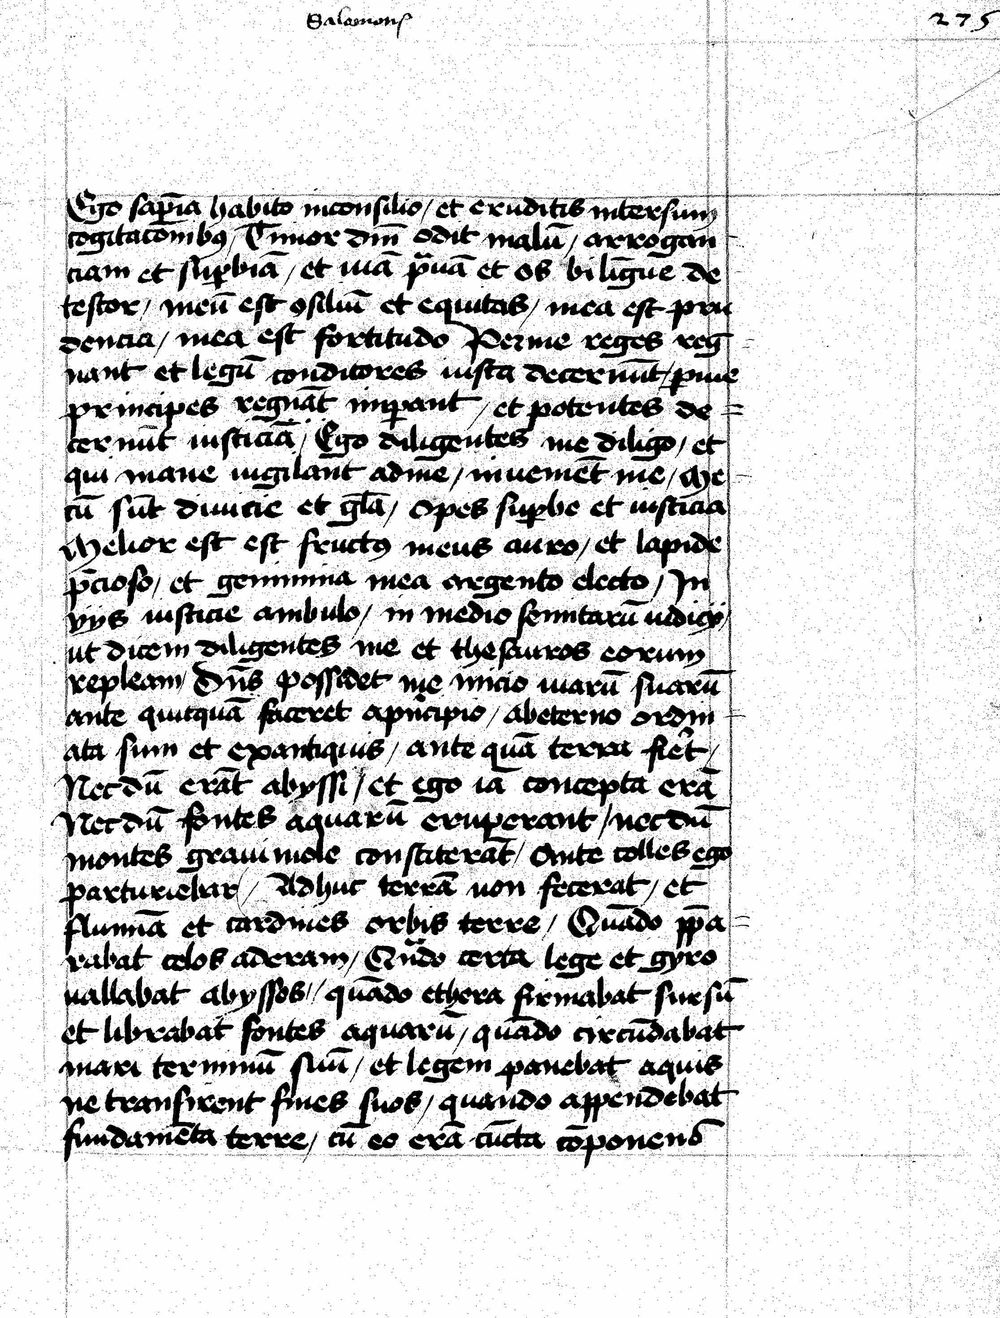 Salomonis
275
Ego sapīa habito inconsilio / et eruditis intersum
cogitacōnibꝯ / Timor dn̄i odit malū / arrogan
ciam et suꝑbiā / et uiā pͣuā et os bilingue de
testor / meū est ꝯsiliū et equitas / mea est pru
dencia / mea est fortitudo Perme reges reg
nant et legū conditores iusta decernūt / ꝑ me
principes regnāt impant / et potentes de
cernūt iusticiā / Ego diligentes me diligo / et
qui mane uigilant adme / inuenient me / Me
cū sūt diuicie et glīa / opes suꝑbe et iusticia
Melior est est fructꝯ meus auro / et lapide
p̄cioso / et gemmina mea argento electo / In
vijs iusticie ambulo / in medio semitarū iudicij /
ut ditem diligentes me et thesauros eorum
repleam Dn̄s possedet me inicio uiarū suarū
ante quicquā faceret apͥncipio / abeterno ordin
ata sum et exantiquis / ante quā terra fieret /
Necdū erāt abyssi / et ego iā concepta erā
Necdū fontes aquarū eruperant / necdū
montes graui mole constiterāt / Ante colles ego
parturiebar / Adhuc terrā non fecerat / et
flumīa et cardines orbis terre / Quādo pp̄a
rabat celos aderam / Qn̄do certa lege et gyro
uallabat abyssos / quādo ethera firmabat sursū
et librabat fontes aquarū / quādo circūdabat
mari terminū suū / et legem panebat aquis
ne transirent fines suos / quando appendebat
fundamēta terre / cū eo erā cūcta cōponens